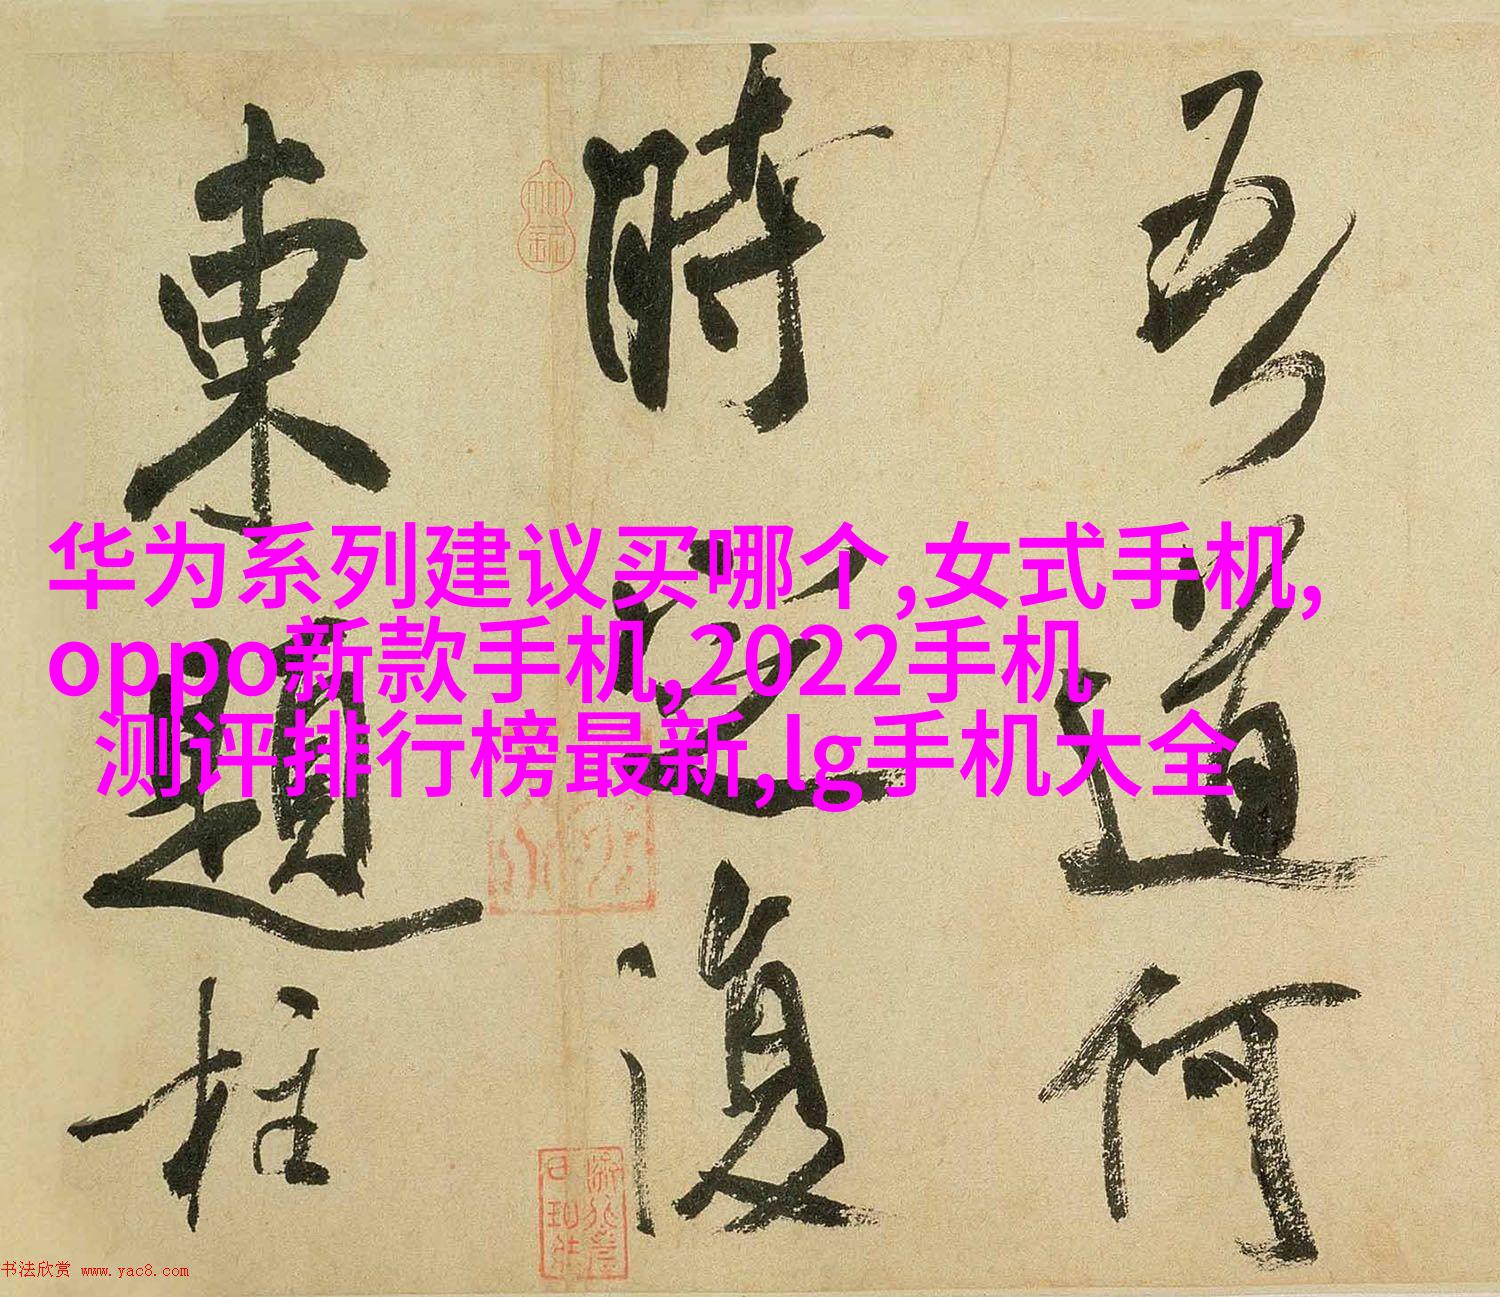 吾道何
時定復
東題柱
华为系列建议买哪个,女式手机,
oppo新款手机,2022手机
测评排行榜最新,lg手机大全
书法欣赏 www.yac8.com